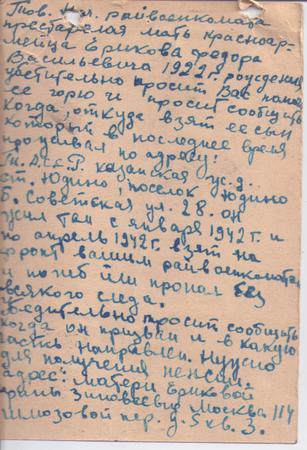 Тов. Нач. райвоенкомата
престарелая мать красноар-
мейца Ерикова Федора
Васильевича 1922 г. рождения
убедительно просит Вас помо
ее горю и просит сообщить
когда, откуда взят ее сын
который в последнее время
проживал по адресу:
Т. А. С. С. Р. казанская ж. д.
ст. Юдино, поселок Юдино
Б. Советская ул. 28. он
жил там с января 1942 г. и
по апрель 1942 г. взят на
фронт вашим райвоенкоматом
и погиб или пропал без
всякого следа.
Убедительно просит сообщить
когда он призван и в какую
часть направлен. Нужно
для получения пенсии.
Адрес: матери Ериковой
Зиновеевы Москва 114
Шлюзовой пер. д. 5 кв. 3.